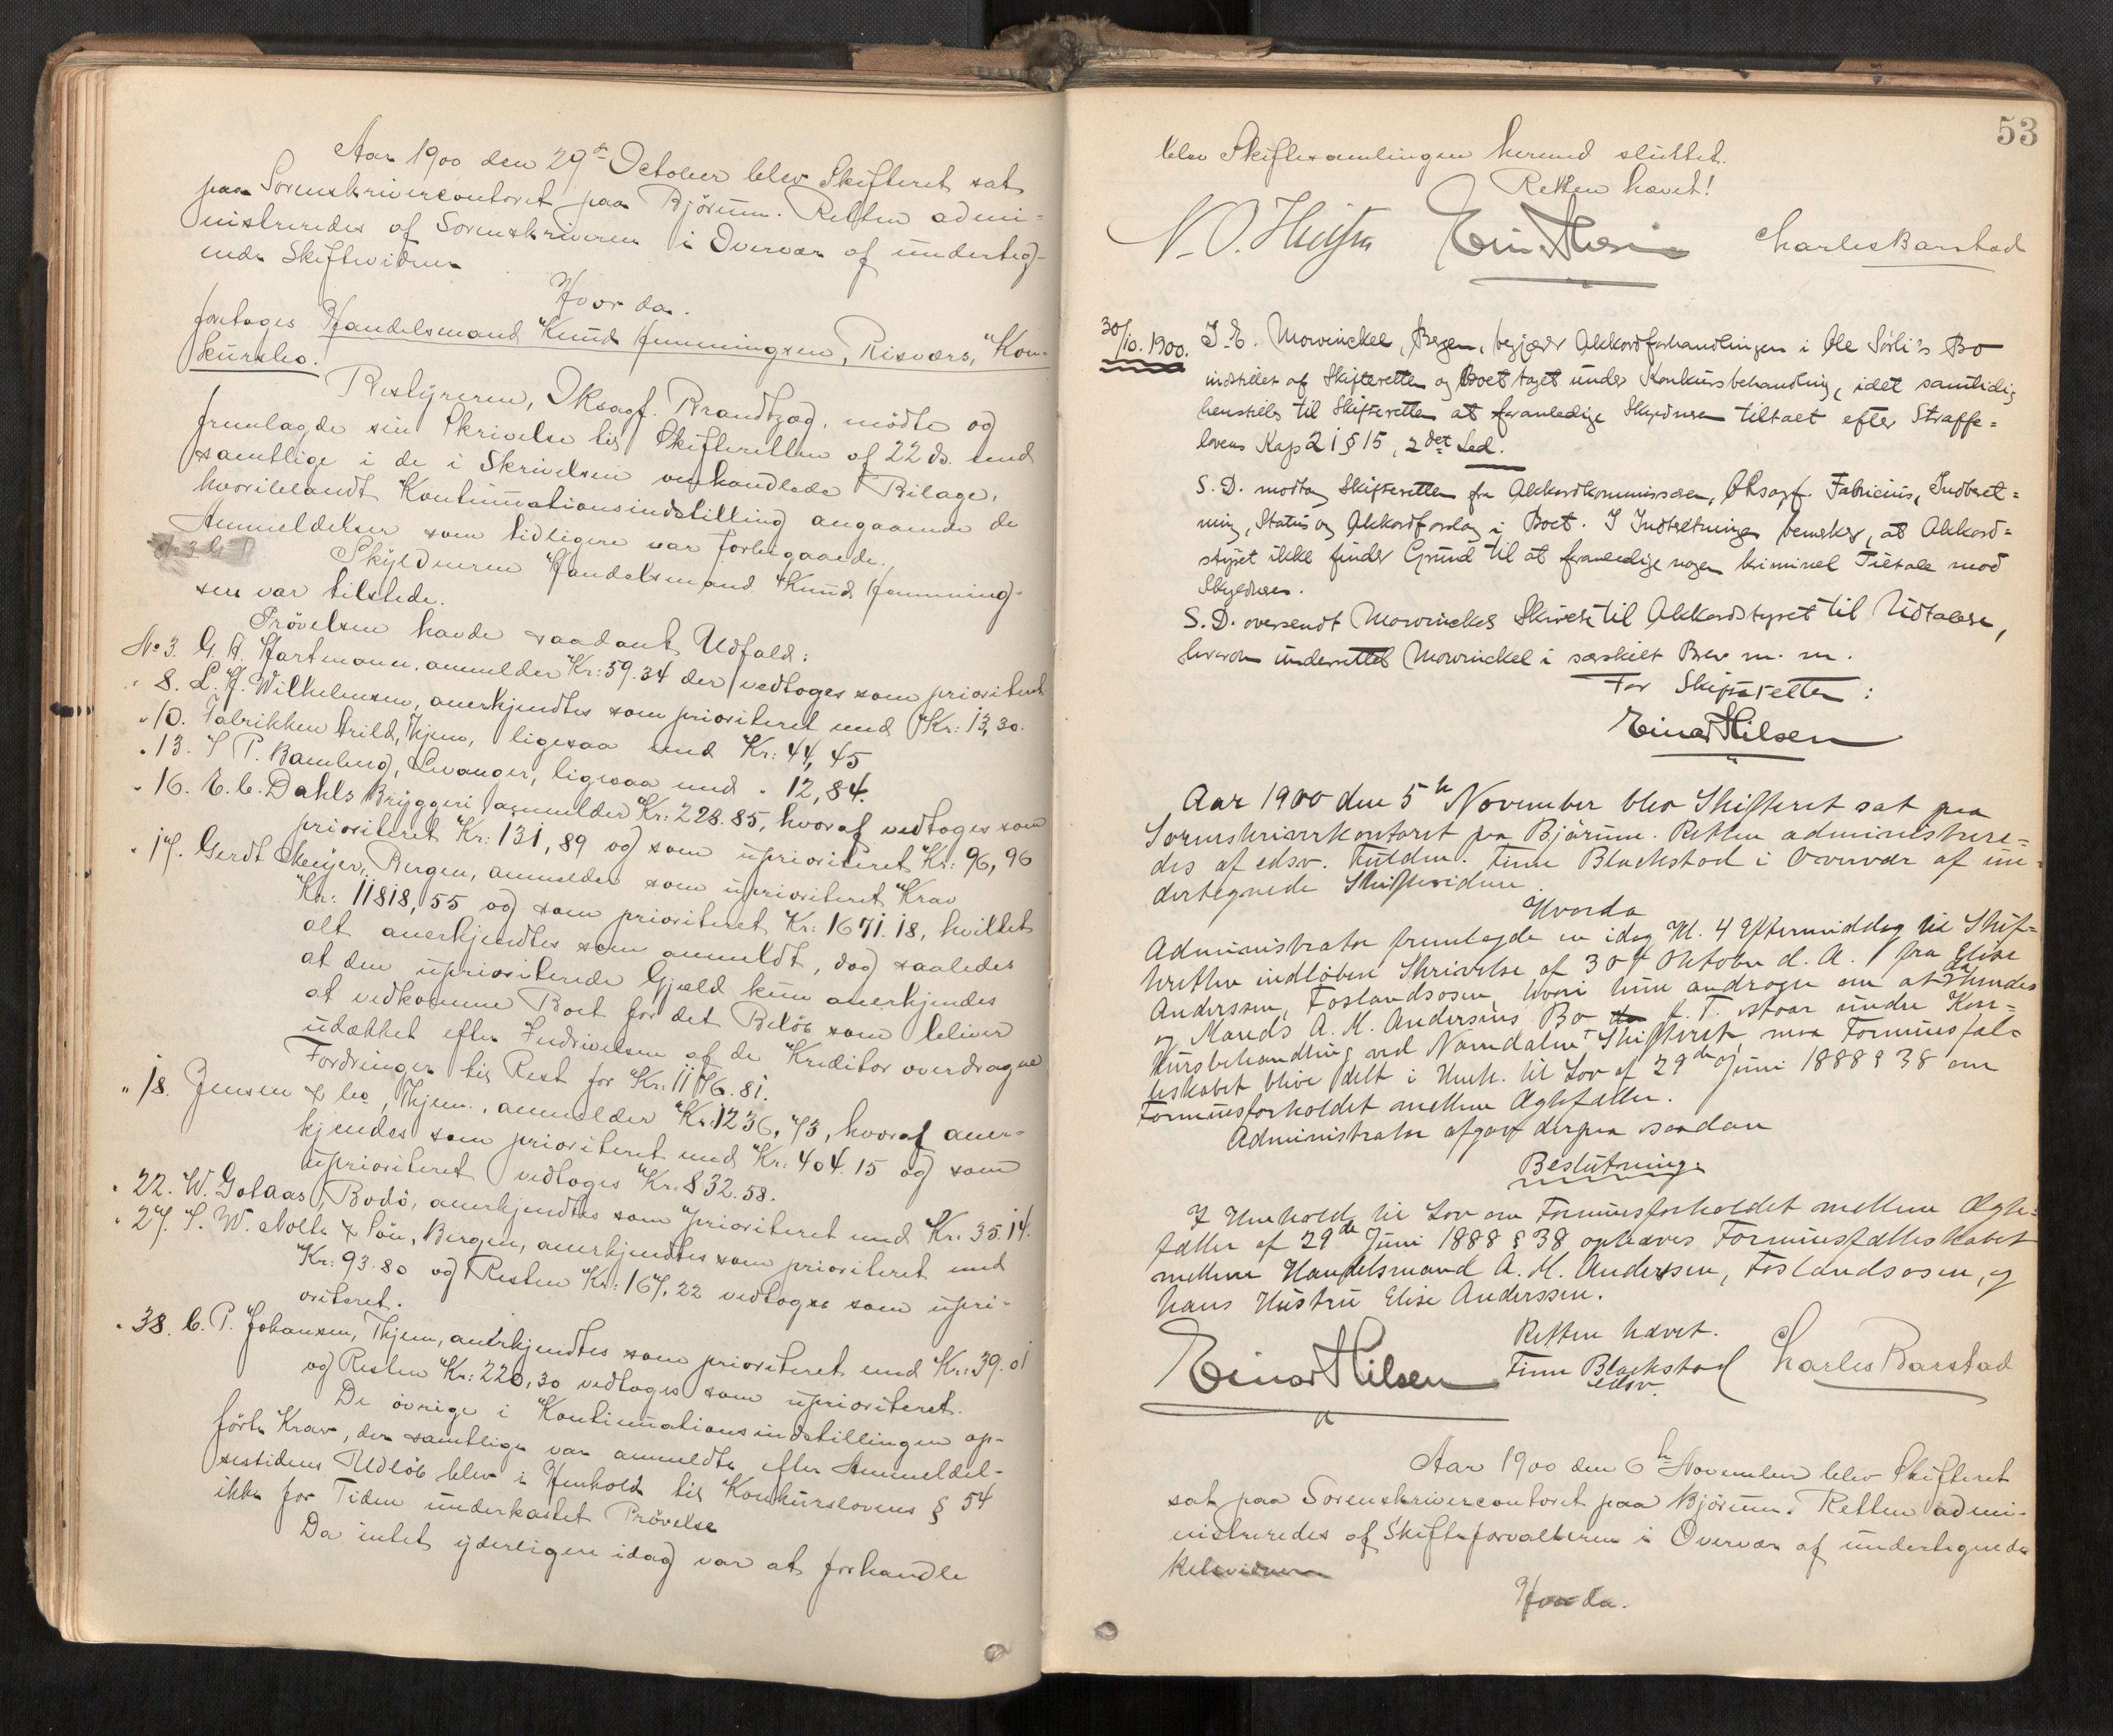 Aar 1900 den 29de October blev Skifteret sat
paa Sorenskrivercontoret paa Bjørum. Retten admi=
nistreredes af Sorenskriveren i Overvær af underteg-
nede Skiftevidner
Hvor da.
foretoges Handelsmand Knud Hemmingsen, Risværs, Kon-
kursbo.
Bestyreren, Oksagf. Brandtzæg, mødte og
fremlagde sin Skrivelse til Skifteretten af 22 ds. med
samtlige i de i Skrivelsen omhandlede Bilage,
hvoriblandt Kontinuationsindstilling angaaende de
Anmeldelser som tidligere var forbigaaede.
Skyldneren Handelsmand Knud Hemming-
sen var tilstede.
Prøvelsen havde saadant Udfald:
No 3. G. A. Hartmann, anmelder Kr: 59.34 der vedtoges som prioriteret
" 8. L. H. Wilhelmsen, anerkjendtes som prioriteret med Kr: 13,30.
" 10. Fabrikken Trild, Thjem, ligesaa med Kr: 44,45
" 13. I P. Bamberg, Levanger, ligesaa med " 12,84.
" 16. E. C. Dahls Bryggeri anmelder Kr: 228.85, hvoraf vedtoges som
prioriteret Kr: 131,89 og som uprioriteret Kr: 96,96
" 17. Gerdt Meyer, Bergen, anmelder som uprioriteret Krav
Kr: 11818,55 og som prioriteret Kr: 1671.18, hvilket
alt anerkjendtes som anmeldt, dog saaledes
at den uprioriterede Gjæld kun anerkjendes
at vedkomme Boet for det Beløb som bliver
udækket efter Inddrivelsen af de Kreditor overdragne
Fordringer til Rest for Kr: 1176.81.
" 18. Jensen & Co, Thjem., anmelder Kr: 1236,73, hvoraf aner-
kjendes som prioriteret med Kr: 404.15 og som
uprioriteret vedtoges Kr: 832.58.
" 22. W. Gotaas, Bodö, anerkjendtes som prioriteret med Kr: 35.14.
" 27. I. W. Nolte & Søn, Bergen, anerkjendtes som prioriteret med
Kr: 93.80 og Resten Kr: 167,22 vedtoges som upri-
oriteret.
" 38. C. P. Johansen, Thjem, anerkjendtes som prioriteret med Kr: 39.01
og Resten Kr: 220,30 vedtoges som uprioriteret.
De øvrige i Kontinuationsindstillingen op-
førte Krav, der samtlige var anmeldte efter Anmeldel-
sestidens Udløb blev i Henhold til Konkurslovens § 54
ikke for Tiden underkastet Prøvelse
Da intet yderligere idag var at forhandle
53
blev Skiftesamlingen hermed sluttet.
Retten hævet!
Charles Barstad
30/10. 1900. I. E. Mowinckel, Bergen, begjærer Akkordforhandlingen i Ole Sørli's Bo
indstillet af Skifteretten og Boet taget under Konkursbehandling, idet samtidig
henstilles til Skifteretten at foranledige Skyldneren tiltalt efter Straffe=
lovens Kap 21 § 15, 2det Led.
S. D. modtog Skifteretten fra Akkordkommissæren, Oksagf. Fabricius, Indberet=
ning, Status og Akkordforslag i Boet. I Indberetningen bemerkes, at Akkord=
styret ikke finder Grund til at foranledige nogen kriminel Tiltale mod
Skyldneren.
S. D. oversendt Mowinckels Skrivelse til Akkordstyret til Udtalelse,
hvorom underrettet Mowinckel i særskilt Brev m. m.
For Skifteretten:
Einar Nilsen
Aar 1900 den 5te November blev Skifteret sat paa
Sorenskriverkontoret paa Bjørum. Retten administrere=
des af edsv. Fuldm. Finn Blackstad i Overvær af un=
dertegnede Skiftevidne.
Hvorda
Administrator fremlagde en idag Kl. 4 Eftermiddag til Skif=
teretten indløben Skrivelse af 30te Oktober d. A. fra Elise
Anderssen, Foslandsosen, hvori hun andrager om at da hendes
og Mands A. M. Anderssens Bo f. T. staar under Kon=
kursbehandling ved Namdalens Skifteret, maa Formuesfæl=
lesskabet blive delt i Henh. til Lov af 29de Juni 1888 § 38 om
Formuesforholdet mellem Ægtefæller.
Administrator afgav derpaa saadan
Beslutning.
I Henhold til Lov om Formuesforholdet mellem Ægte=
fæller af 29de Juni 1888 § 38 ophæves Formuesfællesskabet
mellem Handelsmand A. M. Anderssen, Foslandsosen, og
hans Hustru Elise Anderssen.
Retten hævet.
Einar Nilsen Finn Blackstad Charles Barstad
edsv.
Aar 1900 den 6te November blev Skifteret
sat paa Sorenskrivercontoret paa Bjørum. Retten admi-
nistreredes af Skifteforvalteren i Overvær af undertegnede
Retsvidner
Hvor da.